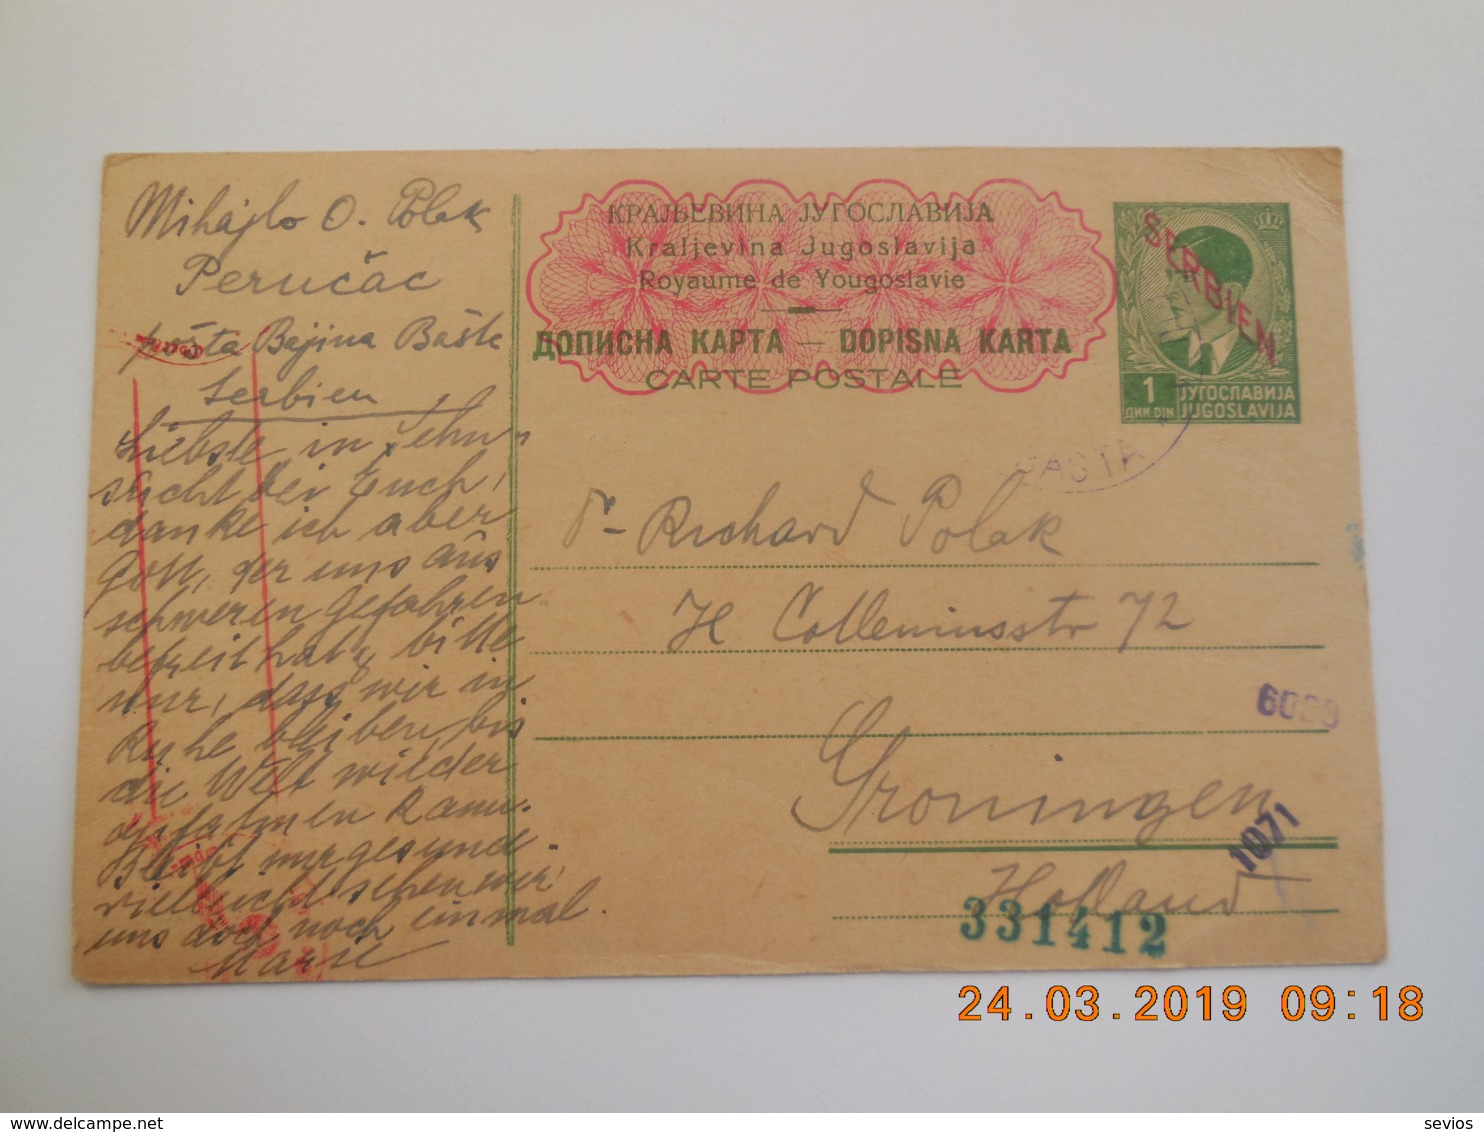 Mihajlo O. Polak
Perućac
pošta Bajina Bašta
Serbien
Liebste in Sehn-
sucht bei Euch,
danke ich aber
Gott, der uns aus
schweren Gefahren
befreit hat, bitte
nur, dass wir in
Ruhe bleiben bis
die Welt wieder
aufatmen kann.
Bleibt nur gesund
vielleicht sehen wir
uns doch noch einmal.
КРАЉЕВИНА ЈУГОСЛАВИЈА
Kraljevina Jugoslavija
Royaume de Yougoslavie
ДОПИСНА КАРТА — DOPISNA KARTA
CARTE POSTALE
SERBIEN
1
ДИН. DIN
ЈУГОСЛАВИЈА
JUGOSLAVIJA
Dr Richard Polak
H Colleniusstr 72
Groningen
Holland
1071
331412
24.03.2019 09:18
sevios